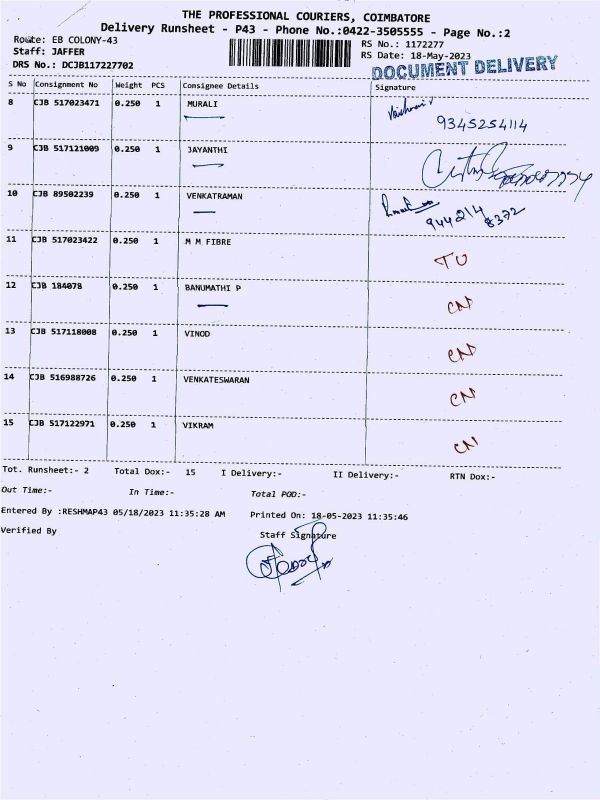 THE PROFESSIONAL COURIERS, COIMBATORE
Delivery Runsheet - P43 - Phone No.:0422-3505555 - Page No.:2
Route: EB COLONY-43
RS No.: 1172277
Staff: JAFFER
RS Date: 18-May-2023
DRS No.: DCJB117227702
DOCUMENT DELIVERY
S No Consignment No Weight PCS Consignee Details Signature
8 CJB 517023471 0.250 1 MURALI
9345254114
9 CJB 517121009 0.250 1 JAYANTHI
10 CJB 89502239 0.250 1 VENKATRAMAN
944214
8372
11 CJB 517023422 0.250 1 M M FIBRE
12 CJB 184078 0.250 1 BANUMATHI P
13 CJB 517118008 0.250 1 VINOD
14 CJB 516988726 0.250 1 VENKATESWARAN
15 CJB 517122971 0.250 1 VIKRAM
Tot. Runsheet:- 2 Total Dox:- 15 I Delivery:- II Delivery:- RTN Dox:-
Out Time:- In Time:- Total POD:-
Entered By :RESHMAP43 05/18/2023 11:35:28 AM Printed On: 18-05-2023 11:35:46
Verified By Staff Signature